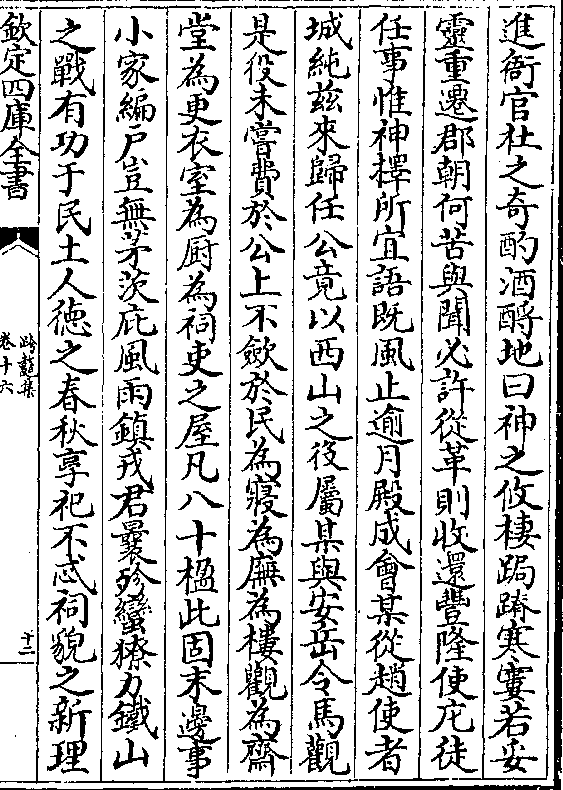 進衙官社之奇酌酒酹地曰神之攸棲跼蹐寒寠若妥
靈重遷郡朝何苦與聞必許從革則收還豐隆使庀徒
任事惟神擇所宜語既風止逾月殿成會某從趙使者
城純茲來歸任公竟以西山之役屬某與安岳令馬觀
是役未嘗費於公上不斂於民為寢為廡為樓觀為齋
堂為更衣室為廚為祠吏之屋凡八十楹此固末邊事
小家編戶豈無茅茨庇風雨鎮戎君曩殄蠻獠力鐵山
之戰有功于民土人德之春秋享祀不忒祠貌之新理
欽定四庫全書
跨鼇集
卷十六
十二